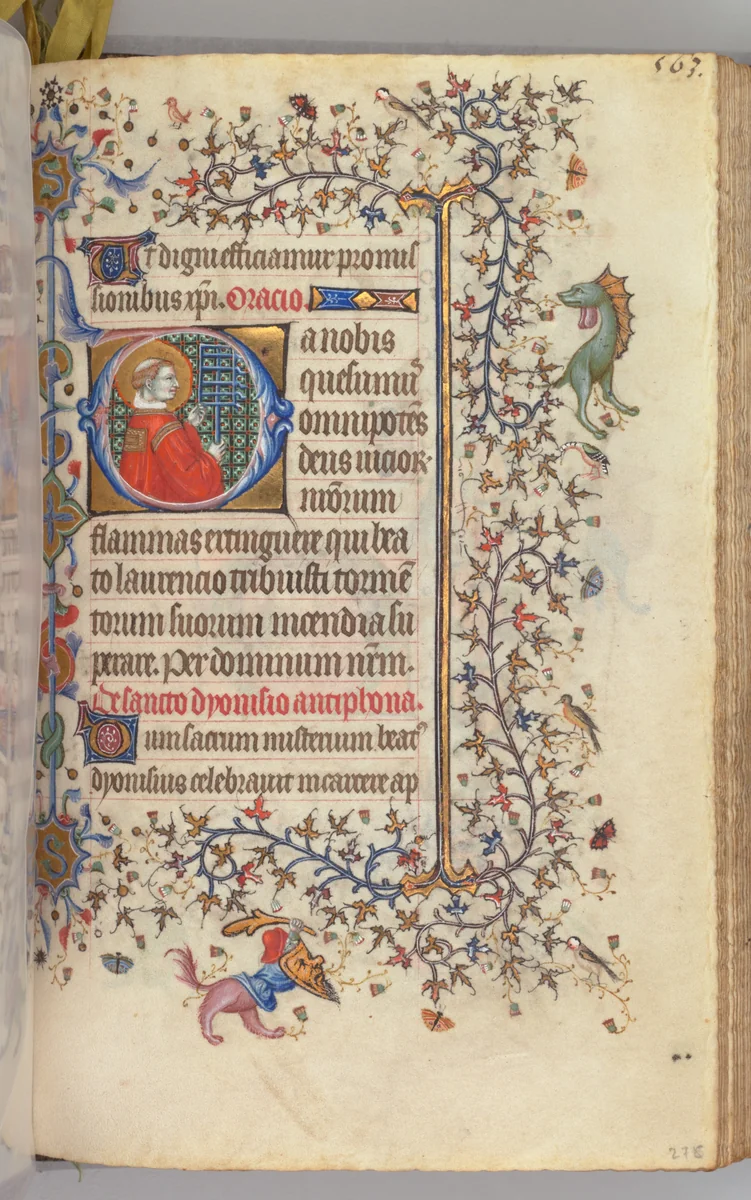 563.
S
Ut digni efficiamur promis
sionibus xpi. Oracio.
Da nobis
quesumus
omnipotēs
deus uicior
mōrum
flammas extinguere qui bea
to laurencio tribuisti tormē
torum suorum incendia su
perare. Per dominum nr̄m.
De sancto dyonisio antiphona.
Dum sacrum misterium beat⁹
dyonisius celebraret in carcere ap
S